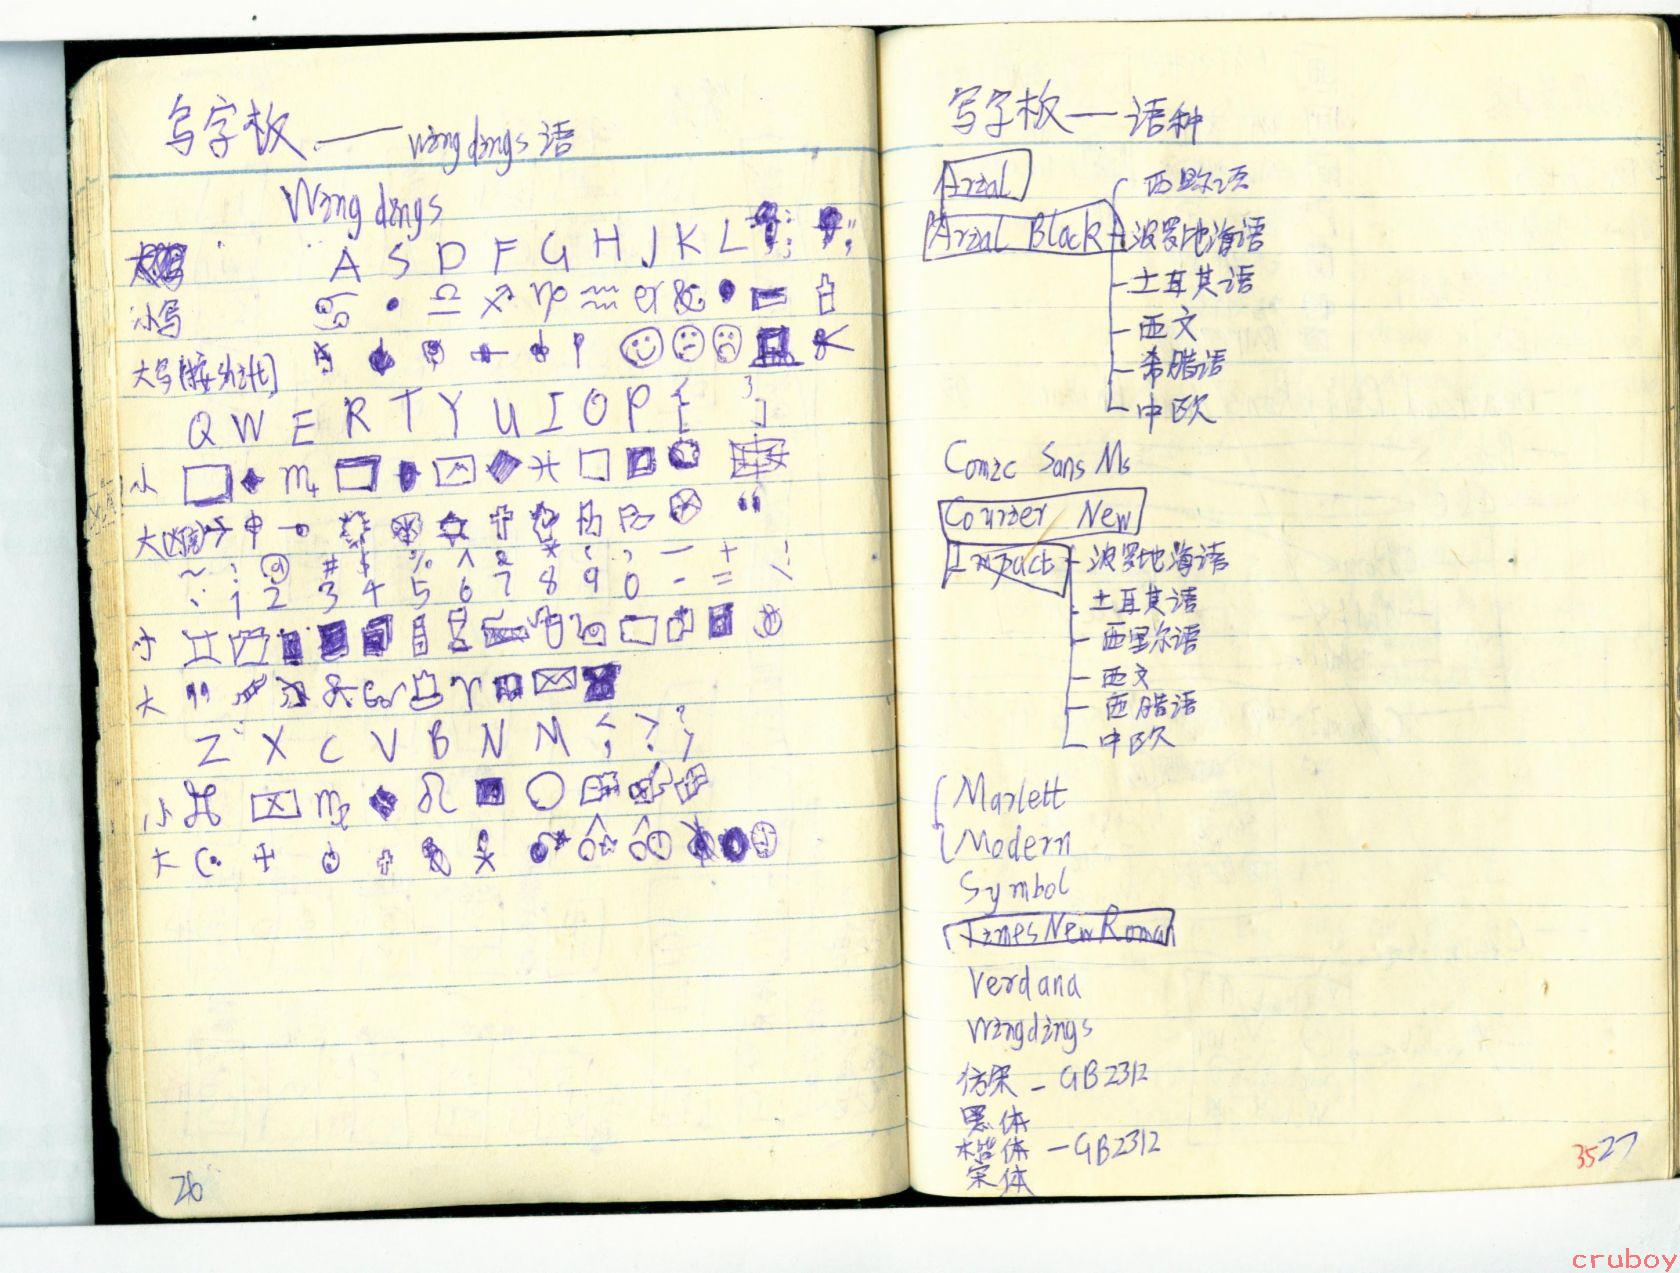 写字板——wingdings语
Wingdings
A S D F G H J K L
小写
大写
Q W E R T Y U I O P { [ } ]
小
大
~ ! @ # $ % ^ & * ( ) — + !
1 2 3 4 5 6 7 8 9 0 - = \
小
大
Z X C V B N M < > ?
小
大
26
写字板——语种
Arial
西里尔语
Arial Black
波罗地海语
土耳其语
西文
希腊语
中欧
Comic Sans Ms
Courier New
Impact
波罗地海语
土耳其语
西里尔语
西文
西腊语
中欧
Marlett
Modern
Symbol
Times New Roman
Verdana
Wingdings
仿宋-GB2312
黑体
楷体-GB2312
宋体
35 27
cruboy